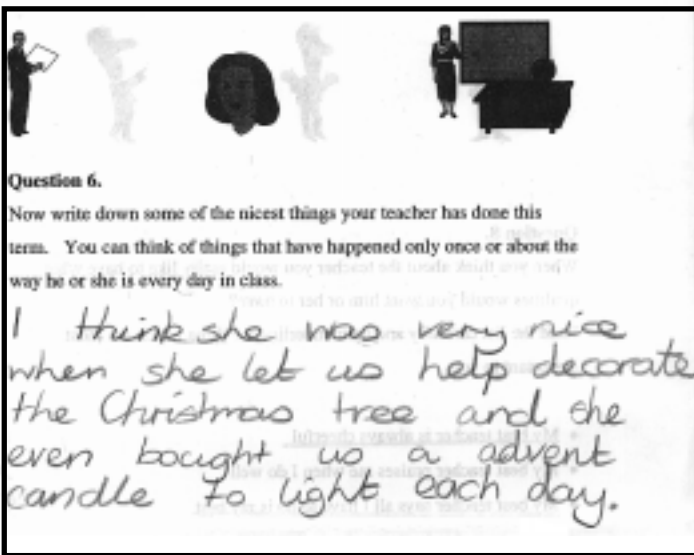 Question 6.
Now write down some of the nicest things your teacher has done this
term. You can think of things that have happened only once or about the
way he or she is every day in class.
I think she was very nice
when she let us help decorate
the Christmas tree and she
even bought us a advent
candle to light each day.